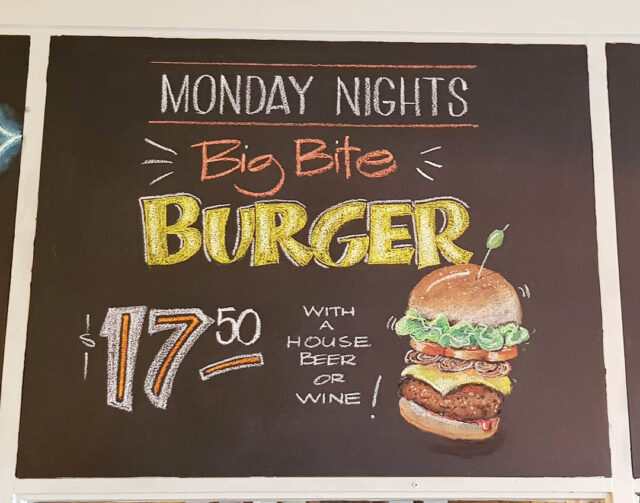 MONDAY NIGHTS
Big Bite
BURGER
$17.50
WITH
A
HOUSE
BEER
OR
WINE!